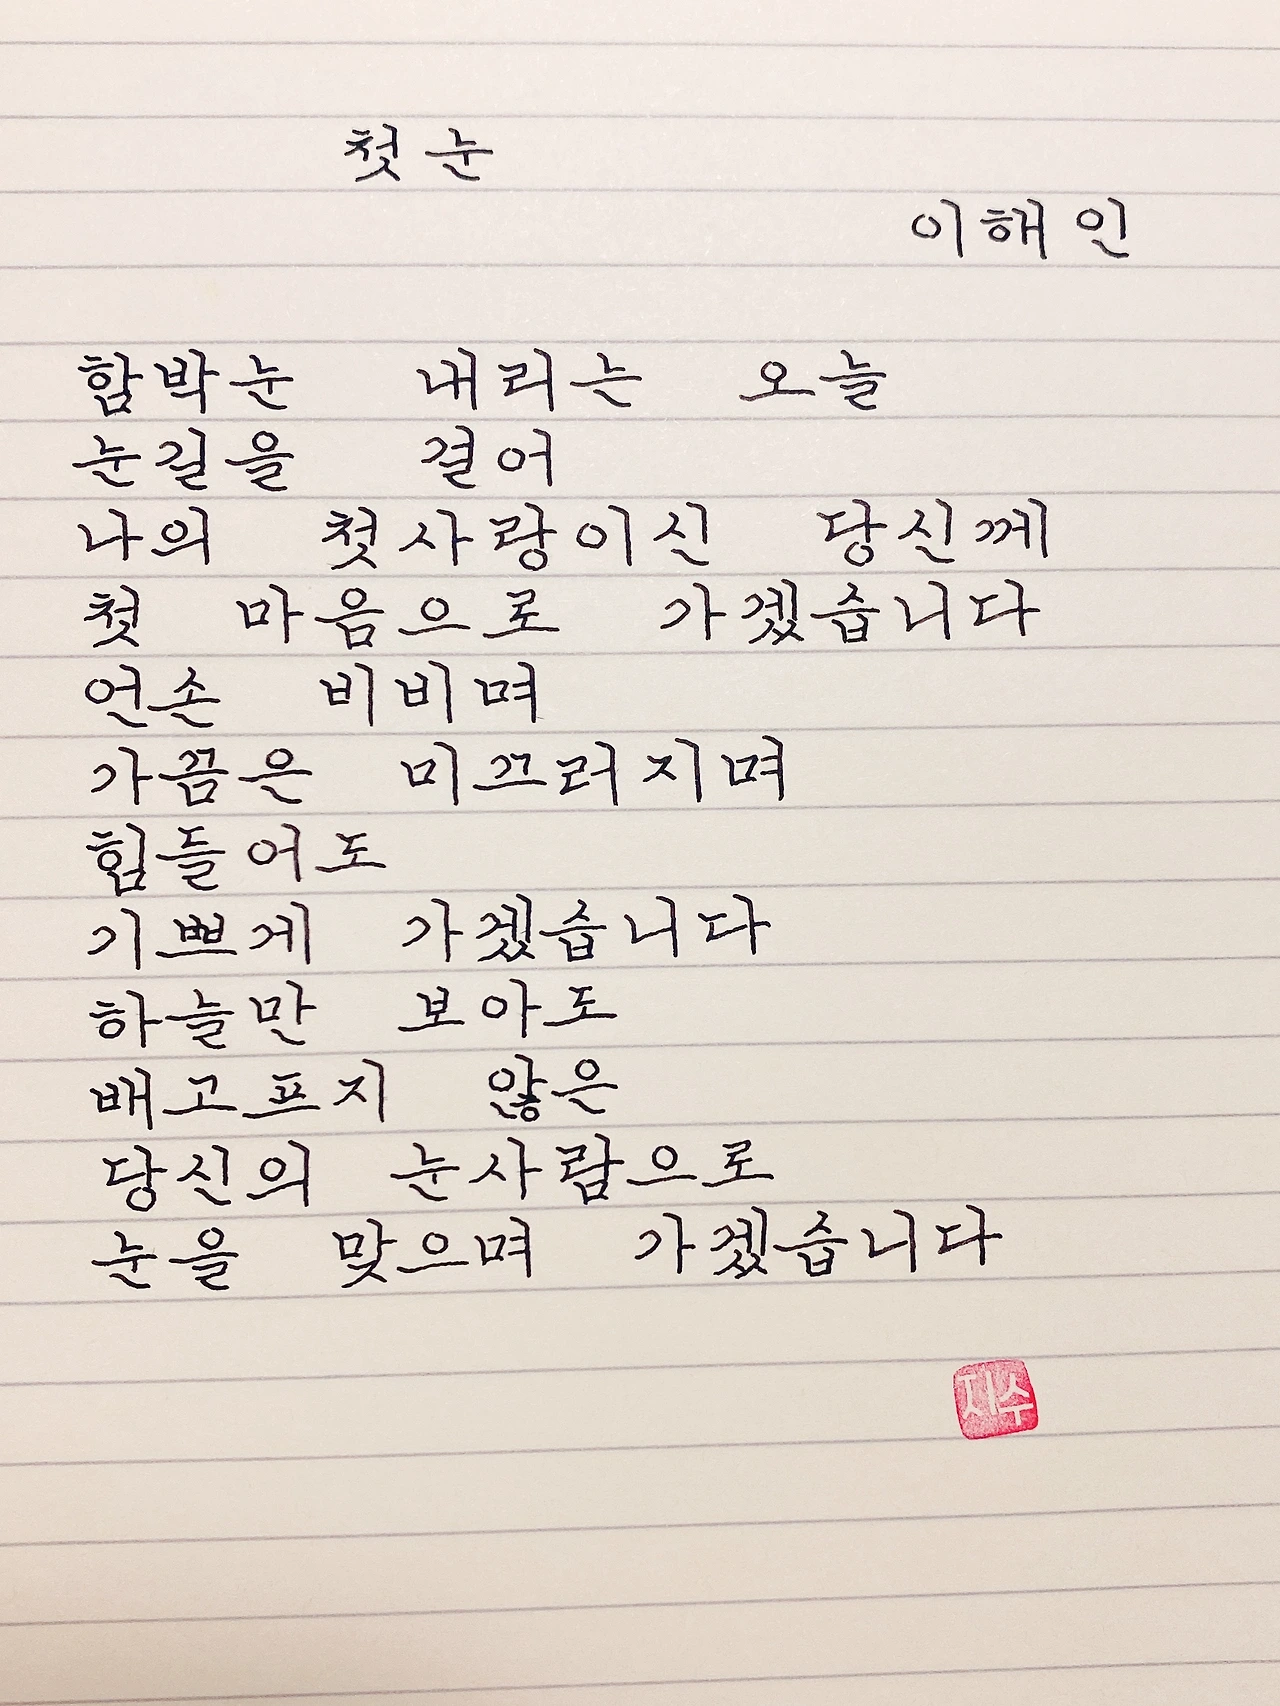 첫눈
이해인
함박눈 내리는 오늘
눈길을 결어
나의 첫사랑이신 당신께
첫 마음으로 가겠습니다
언손 비비며
가끔은 미끄러지며
힘들어도
기쁘게 가겠습니다
하늘만 보아도
배고프지 않은
당신의 눈사람으로
눈을 맞으며 가겠습니다
지수